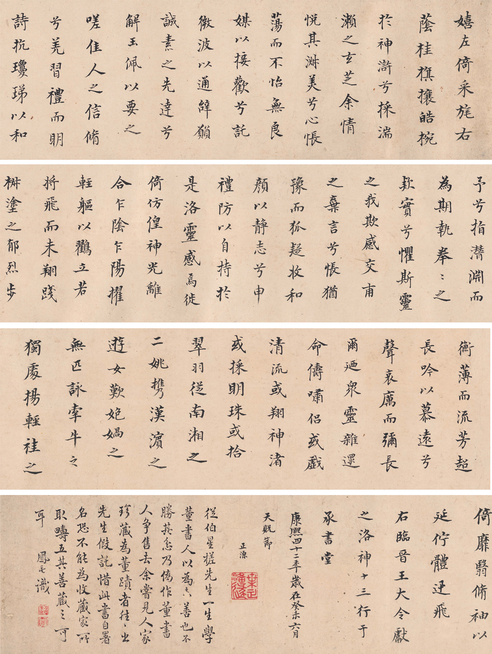 嬉左倚采旄右
蔭桂旗攘皓椀
於神滸兮採湍
瀨之玄芝余情
悅其淑美兮心悵
蕩而不怡無良
媒以接歡兮託
微波以通辭願
誠素之先達兮
解玉佩以要之
嗟佳人之信脩
兮羌習禮而明
詩抗瓊珶以和
予兮指潛淵而
為期執拳〻之
款實兮懼斯靈
之我欺感交甫
之棄言兮悵猶
豫而狐疑收和
顏以靜志兮申
禮防以自持於
是洛靈感焉徙
倚仿偟神光離
合乍陰乍陽擢
輕軀以鶴立若
將飛而未翔踐
椒塗之郁烈步
衡薄而流芳超
長吟以慕遠兮
聲哀厲而彌長
爾迺衆靈雜遝
命儔嘯侶或戲
清流或翔神渚
或採明珠或拾
翠羽從南湘之
二姚攜漢濱之
遊女歎匏媧之
無匹詠牽牛之
獨處揚輕袿之
倚靡翳脩袖以
延佇體迅飛
右臨晉王大令獻
之洛神十三行于
承書堂
康熙四十二年歲在癸未六月
天貺節
正源
從伯星槎先生一生學
董書人以為〻善也不
勝其忿乃偽作董書
人爭售去余嘗見人家
珍藏為董蹟者往〻出
先生假託惜此書自署
名恐不能為收藏家所
取疇五其善藏之可
耳 鳳識